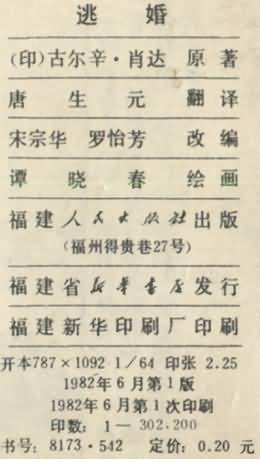 逃婚
(印)古尔辛·肖达 原著
唐生元 翻译
宋宗华 罗怡芳 改编
谭晓春 绘画
福建人民出版社出版
(福州得贵巷27号)
福建省新华书店发行
福建新华印刷厂印刷
开本787×1092 1/64 印张 2.25
1982年6月第1版
1982年6月第1次印刷
印数: 1—302,200
书号: 8173·542 定价: 0.20 元